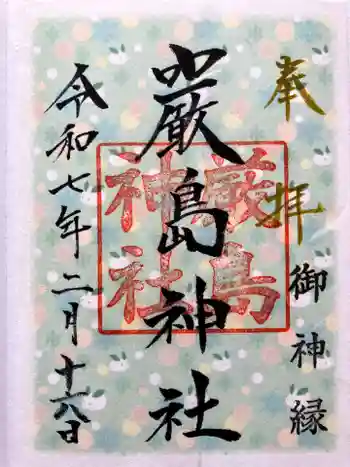 奉拝
御神縁
厳島神社
厳島
神社
令和七年二月十六日